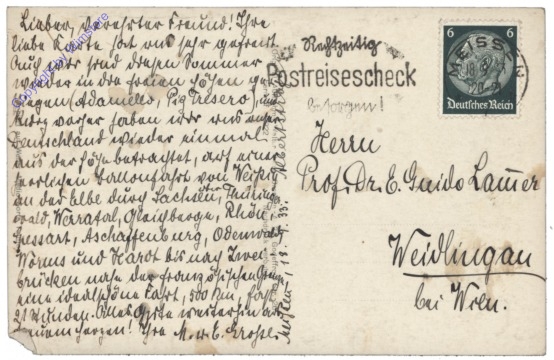 Lieber, verehrter Freund! Ihre
liebe Karte hat uns sehr gefreut.
Auch wir sind diesen Sommer
wieder in den freien Höhen ge-
legen (Adamello, Piz Tresero), und
kurz vorher haben wir uns unser
Deutschland wieder einmal
aus der Höhe betrachtet, auf einer
herrlichen Ballonfahrt von
an der Elbe durch Sachsen, Thüringer-
wald, Werratal, Gleichberge, Rhön,
Spessart, Aschaffenburg, Odenwald,
Worms und Hardt bis nach Zwei-
brücken nahe der französischen Grenze
eine ideal schöne Fahrt, 500 km, fast
21 Stunden. Alles Gute weiterhin aus
treuem Herzen! Ihre M. u. E.
Meißen, 18. 9. 33.
Rechtzeitig
Postreisescheck
besorgen!
MEISSEN
6 6
Deutsches Reich
Herrn
Prof. Dr. E. Guido Lammer
Weidlingau
bei Wien.